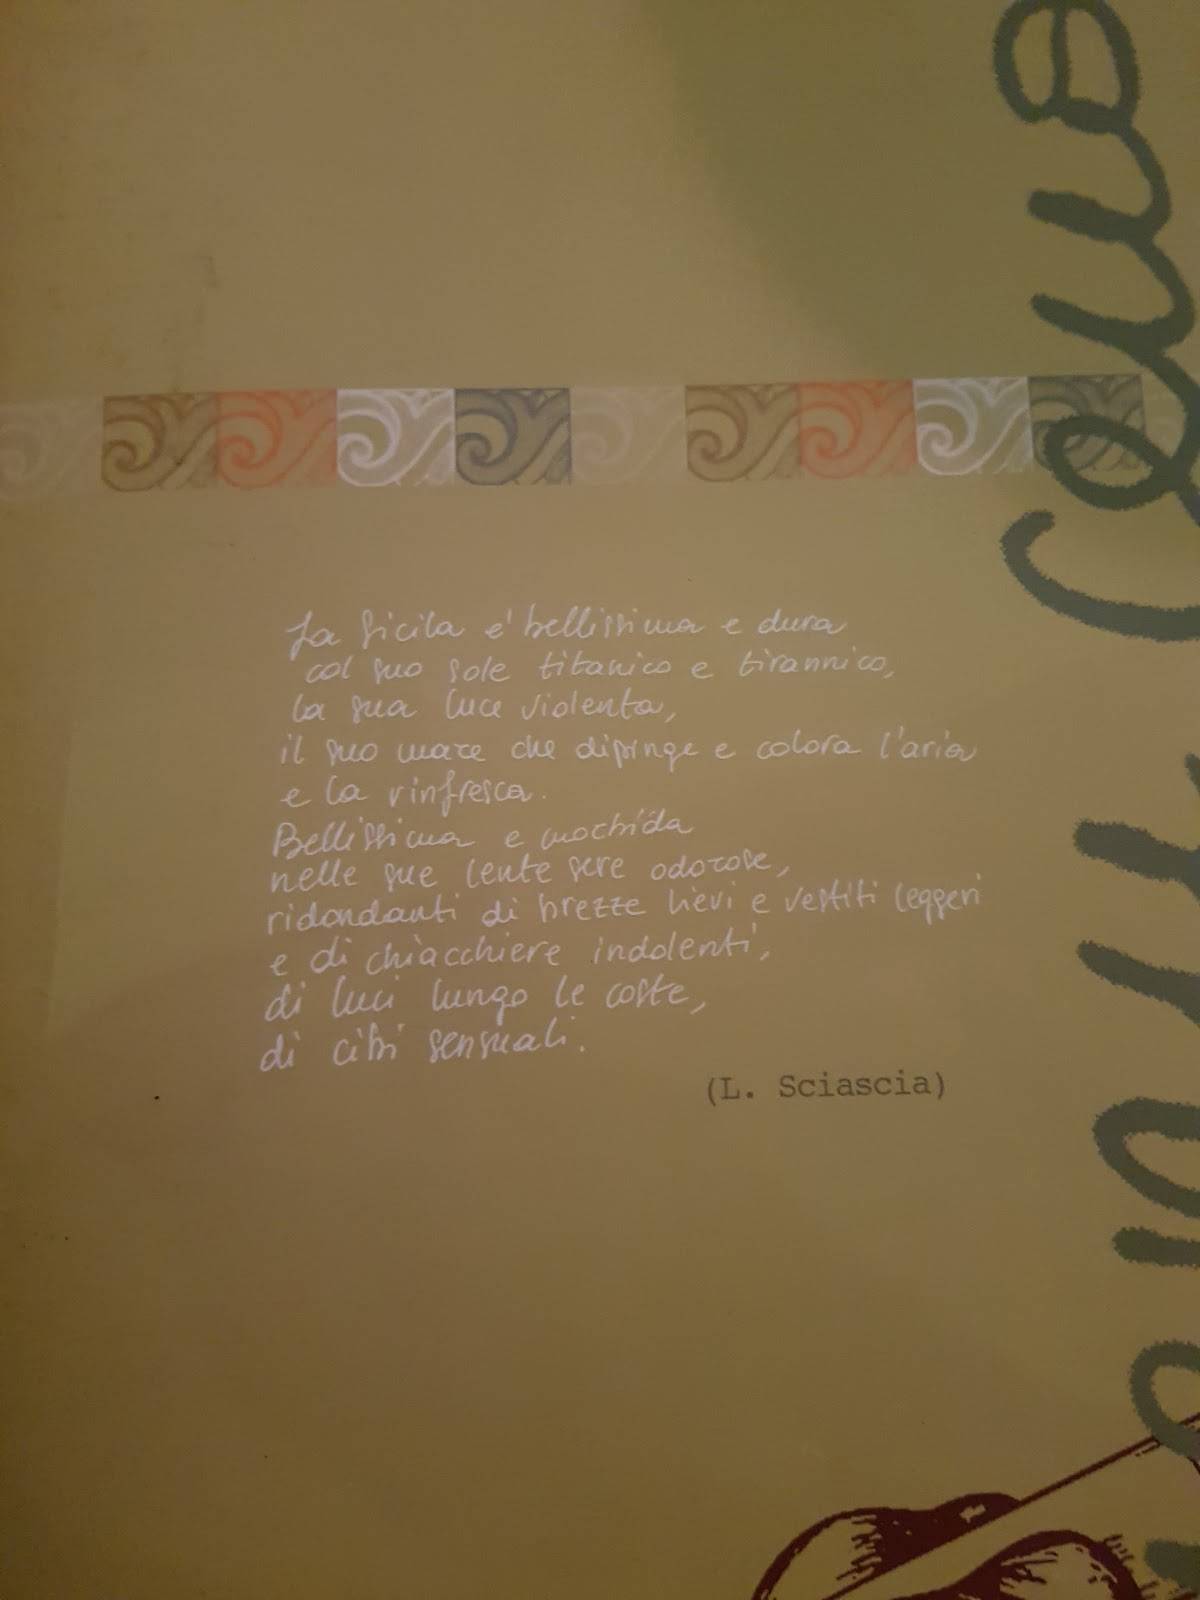 La Sicilia è bellissima e dura
col suo sole titanico e tirannico,
la sua luce violenta,
il suo mare che dipinge e colora l'aria
e la rinfresca.
Bellissima e morbida
nelle sue lente sere odorose,
ridondanti di brezze lievi e vestiti leggeri
e di chiacchiere indolenti,
di luci lungo le coste,
di cibi sensuali.
(L. Sciascia)